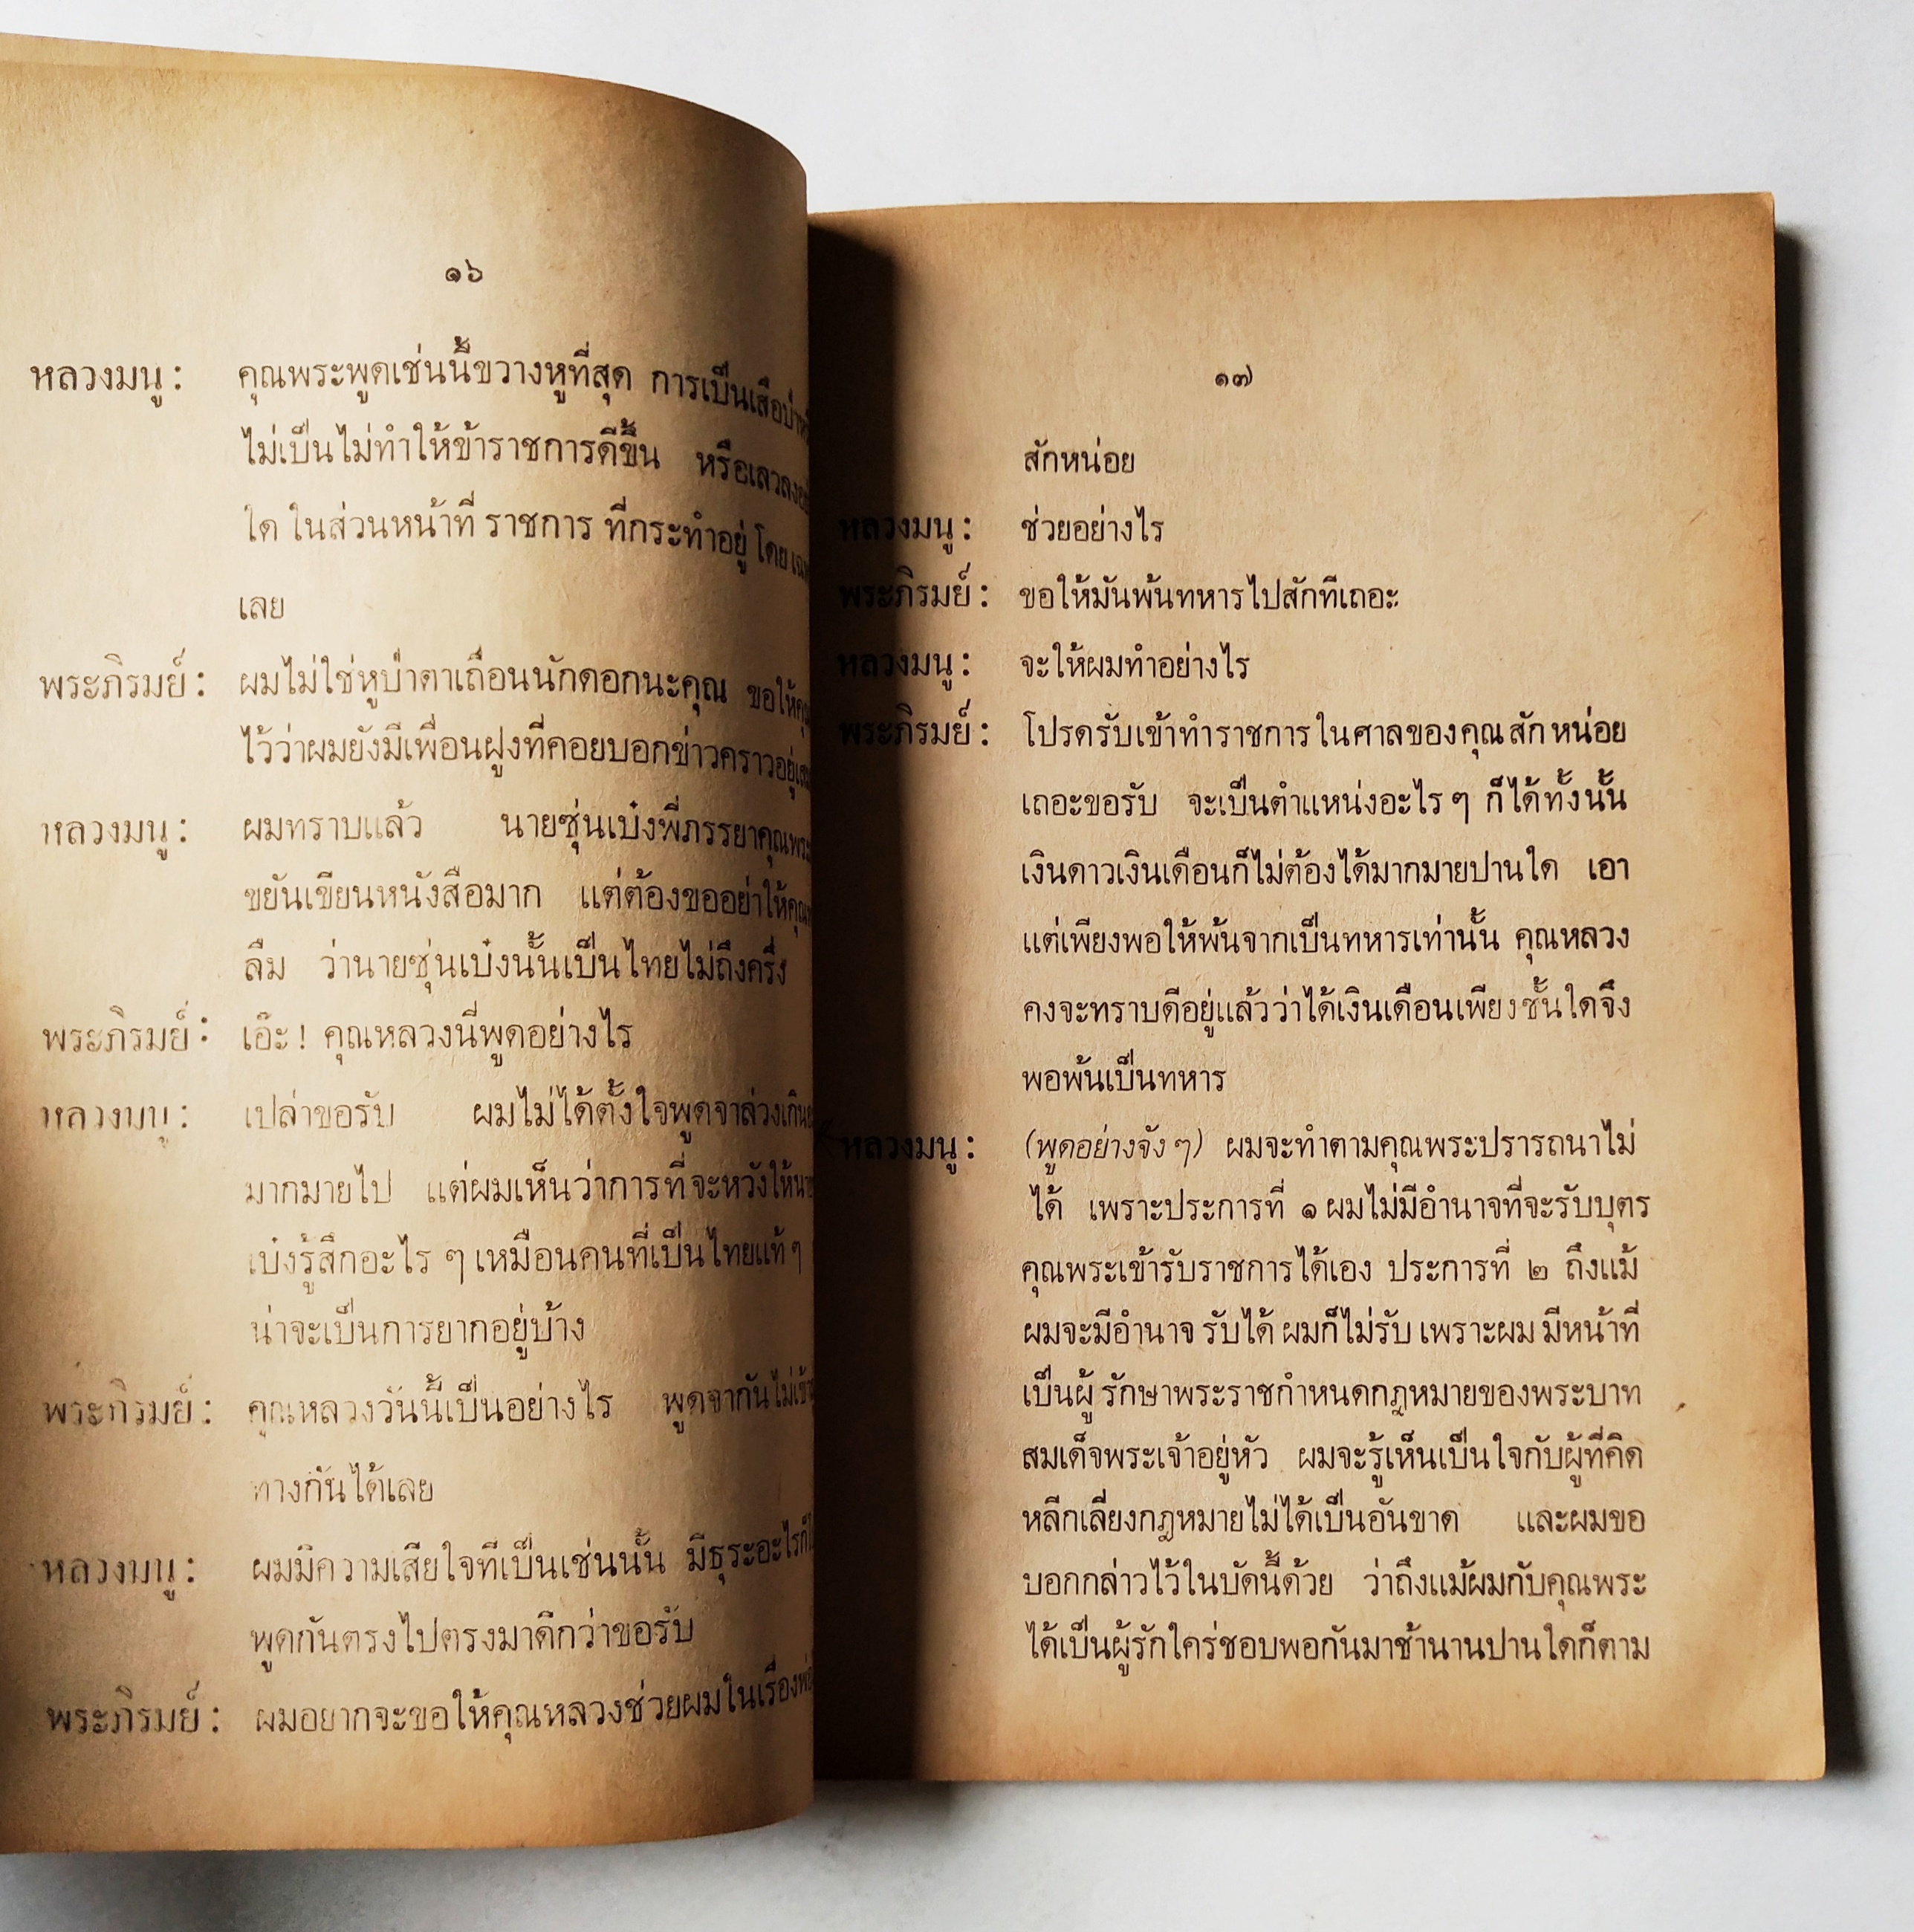 ๑๖
หลวงมนู : คุณพระพูดเช่นนี้ขวางหูที่สุด การเป็นเสือป่า
ไม่เป็นไม่ทำให้ข้าราชการดีขึ้น หรือเลวลง
ใด ในส่วนหน้าที่ ราชการ ที่กระทำอยู่ โดย
เลย
พระภิรมย์ : ผมไม่ใช่หูป่าตาเถื่อนนักดอกนะคุณ ขอให้
ไว้ว่าผมยังมีเพื่อนฝูงที่คอยบอกข่าวคราวอยู่
หลวงมนู : ผมทราบแล้ว นายซุ่นเบ๋งพี่ภรรยาคุณพระ
ขยันเขียนหนังสือมาก แต่ต้องขออย่าให้
ลืม ว่านายซุ่นเบ๋งนั้นเป็นไทยไม่ถึงครึ่ง
พระภิรมย์ : เอ๊ะ ! คุณหลวงนี่พูดอย่างไร
หลวงมนู : เปล่าขอรับ ผมไม่ได้ตั้งใจพูดจาล่วงเกิน
มากมายไป แต่ผมเห็นว่าการที่จะหวังให้
เบ๋งรู้สึกอะไร ๆ เหมือนคนที่เป็นไทยแท้ ๆ
น่าจะเป็นการยากอยู่บ้าง
พระภิรมย์ : คุณหลวงวันนี้เป็นอย่างไร พูดจากันไม่เข้า
ทางกันได้เลย
หลวงมนู : ผมมีความเสียใจที่เป็นเช่นนั้น มีธุระอะไรก็
พูดกันตรงไปตรงมาดีกว่าขอรับ
พระภิรมย์ : ผมอยากจะขอให้คุณหลวงช่วยผมในเรื่อง
๑๗
สักหน่อย
หลวงมนู : ช่วยอย่างไร
พระภิรมย์ : ขอให้มันพ้นทหารไปสักทีเถอะ
หลวงมนู : จะให้ผมทำอย่างไร
พระภิรมย์ : โปรดรับเข้าทำราชการในศาลของคุณสักหน่อย
เถอะขอรับ จะเป็นตำแหน่งอะไร ๆ ก็ได้ทั้งนั้น
เงินดาวเงินเดือนก็ไม่ต้องได้มากมายปานใด เอา
แต่เพียงพอให้พ้นจากเป็นทหารเท่านั้น คุณหลวง
คงจะทราบดีอยู่แล้วว่าได้เงินเดือนเพียงชั้นใดจึง
พอพ้นเป็นทหาร
หลวงมนู : (พูดอย่างจัง ๆ) ผมจะทำตามคุณพระปรารถนาไม่
ได้ เพราะประการที่ ๑ ผมไม่มีอำนาจที่จะรับบุตร
คุณพระเข้ารับราชการได้เอง ประการที่ ๒ ถึงแม้
ผมจะมีอำนาจ รับได้ ผมก็ไม่รับ เพราะผม มีหน้าที่
เป็นผู้ รักษาพระราชกำหนดกฎหมายของพระบาท
สมเด็จพระเจ้าอยู่หัว ผมจะรู้เห็นเป็นใจกับผู้ที่คิด
หลีกเลี่ยงกฎหมายไม่ได้เป็นอันขาด และผมขอ
บอกกล่าวไว้ในบัดนี้ด้วย ว่าถึงแม้ผมกับคุณพระ
ได้เป็นผู้รักใคร่ชอบพอกันมาช้านานปานใดก็ตาม